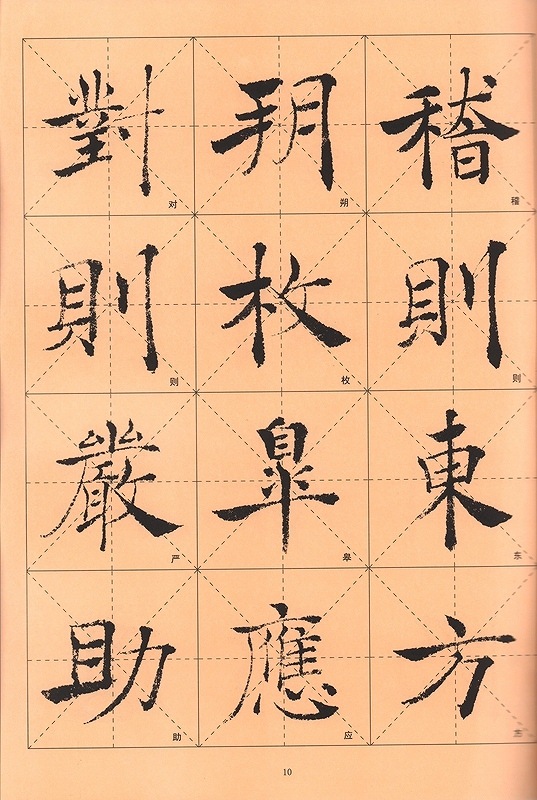 稽則東方
朔枚皋應
對則嚴助
稽
则
东
朔
枚
皋
应
对
则
严
助
10